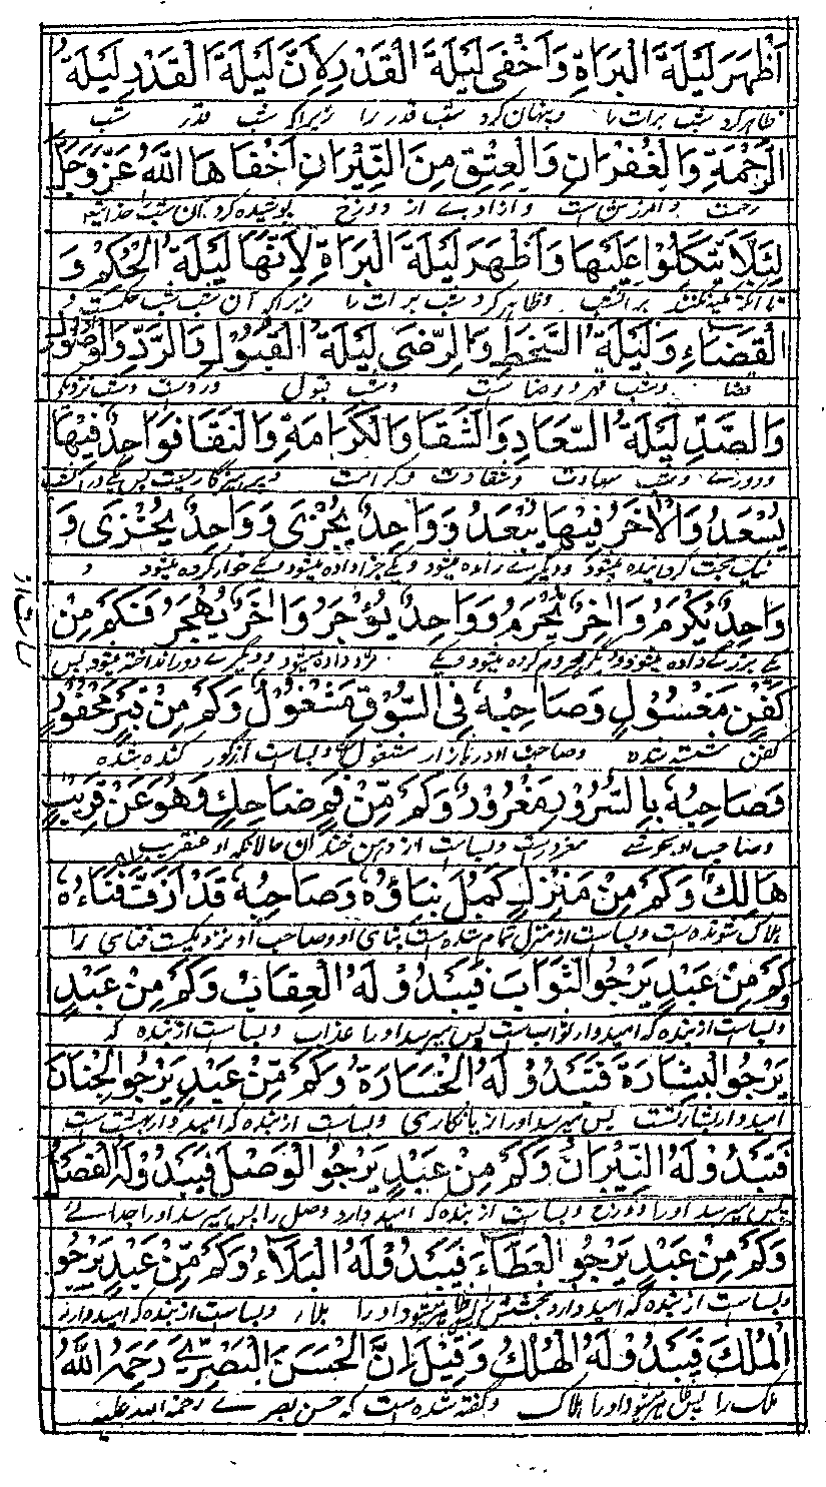 أَظْهَرَ لَيْلَةَ الْبَرَاةِ وَأَخْفَى لَيْلَةَ الْقَدْرِ لِأَنَّ لَيْلَةَ الْقَدْرِ لَيْلَةُ
ظاهر کرد شب برات را و پنهان کرد شب قدر را زیرا که شب قدر شب
الرَّحْمَةِ وَالْغُفْرَانِ وَالْعِتْقِ مِنَ النِّيْرَانِ أَخْفَاهَا اللّٰهُ عَزَّ وَجَلَّ
رحمت و آمرزش است و آزادی از دوزخ پوشیده کرد آن شب
لِئَلَّا يَتَّكِلُوا عَلَيْهَا وَأَظْهَرَ لَيْلَةَ الْبَرَاةِ لِأَنَّهَا لَيْلَةُ الْحُكْمِ وَ
تا آنکه تکیه نکنند بر آنشب و ظاهر کرد شب برات را زیرا که آن شب شب حکمست و
الْقَضَاءِ وَلَيْلَةُ السَّخَطِ وَالرِّضٰى لَيْلَةُ الْقَبُولِ وَالرَّدِّ وَالْوُصُوْلِ
قضا و شب قهر و رضا است و شب قبول و رد است و شب نزدیکی
وَالصَّدِّ لَيْلَةُ السَّعَادِ وَالشَّقَا وَالْكَرَامَةِ وَالنَّقَا فَوَاحِدٌ فِيْهَا
و دوری و شب سعادت و شقاوت و کرامت
يُسْعَدُ وَالْآخَرُ فِيْهَا يُبْعَدُ وَوَاحِدٌ يُجْزٰى وَوَاحِدٌ يُخْزٰى وَ
نیک بخت گردانیده میشود و دیگری رانده میشود و یکی جزا داده میشود و یکی خوار کرده میشود و
وَاحِدٌ يُكْرَمُ وَاٰخَرُ يُحْرَمُ وَوَاحِدٌ يُؤْجَرُ وَاٰخَرُ يُهْجَرُ فَكَمْ مِنْ
یکی بزرگی داده میشود و دیگر محروم کرده میشود و یکی مزد داده میشود و دیگری دور انداخته میشود پس
كَفَنٍ مَغْسُوْلٍ وَصَاحِبُهُ فِي السُّوْقِ مَشْغُوْلٌ وَكَمْ مِنْ قَبْرٍ مَحْفُوْرٍ
کفن شسته شده و صاحب او در بازار مشغول و بسیاست از گور کنده شده
وَصَاحِبُهُ بِالسُّرُوْرِ مَغْرُوْرٌ وَكَمْ مِّنْ فَمٍ ضَاحِكٍ وَهُوَ عَنْ قَرِيْبٍ
و صاحب او بخوشی مغرور است و بسیاست از دهن خندان حالانکه او عنقریب
هَالِكٌ وَكَمْ مِنْ مَنْزِلٍ كَمُلَ بِنَاؤُهُ وَصَاحِبُهُ قَدْ أَزِفَ فَنَاءُهُ
هلاک شونده است و بسیاست از منزل تمام شده است بنای او و صاحب او نزدیکست فنای را
وَكَمْ مِنْ عَبْدٍ يَرْجُو الثَّوَابَ فَيَبْدُوْ لَهُ الْعِقَابُ وَكَمْ مِنْ عَبْدٍ
و بسیاست از بنده که امیدوار ثوابست پس میرسد او را عذاب و بسیاست از بنده که
يَرْجُو الْبِشَارَةَ فَتَبْدُوْ لَهُ الْخَسَارَةُ وَكَمْ مِّنْ عَبْدٍ يَرْجُو الْجِنَانَ
امیدوار بشارتست پس میرسد او را زیانکاری و بسیاست از بنده که امیدوار بهشت است
فَتَبْدُوْ لَهُ النِّيْرَانُ وَكَمْ مِنْ عَبْدٍ يَرْجُو الْوَصْلَ فَيَبْدُوْ لَهُ الْفَصْلُ
پس میرسد او را دوزخ و بسیاست از بنده که امید دارد وصل را پس میرسد او را جدائی
وَكَمْ مِنْ عَبْدٍ يَرْجُو الْعَطَاءَ فَيَبْدُوْ لَهُ الْبَلَاءُ وَكَمْ مِّنْ عَبْدٍ يَرْجُو
و بسیاست از بنده که امید دارد بخشش را پس ظاهر میشود او را بلاء و بسیاست از بنده که امیدوار
الْمُلْكَ فَيَبْدُوْ لَهُ الْهُلْكُ وَقِيْلَ إِنَّ الْحَسَنَ الْبَصْرِيَّ رَحِمَهُ اللّٰهُ
ملک را پس ظاهر میشود او را هلاک و گفته شده است که حسن بصری رحمة الله علیه